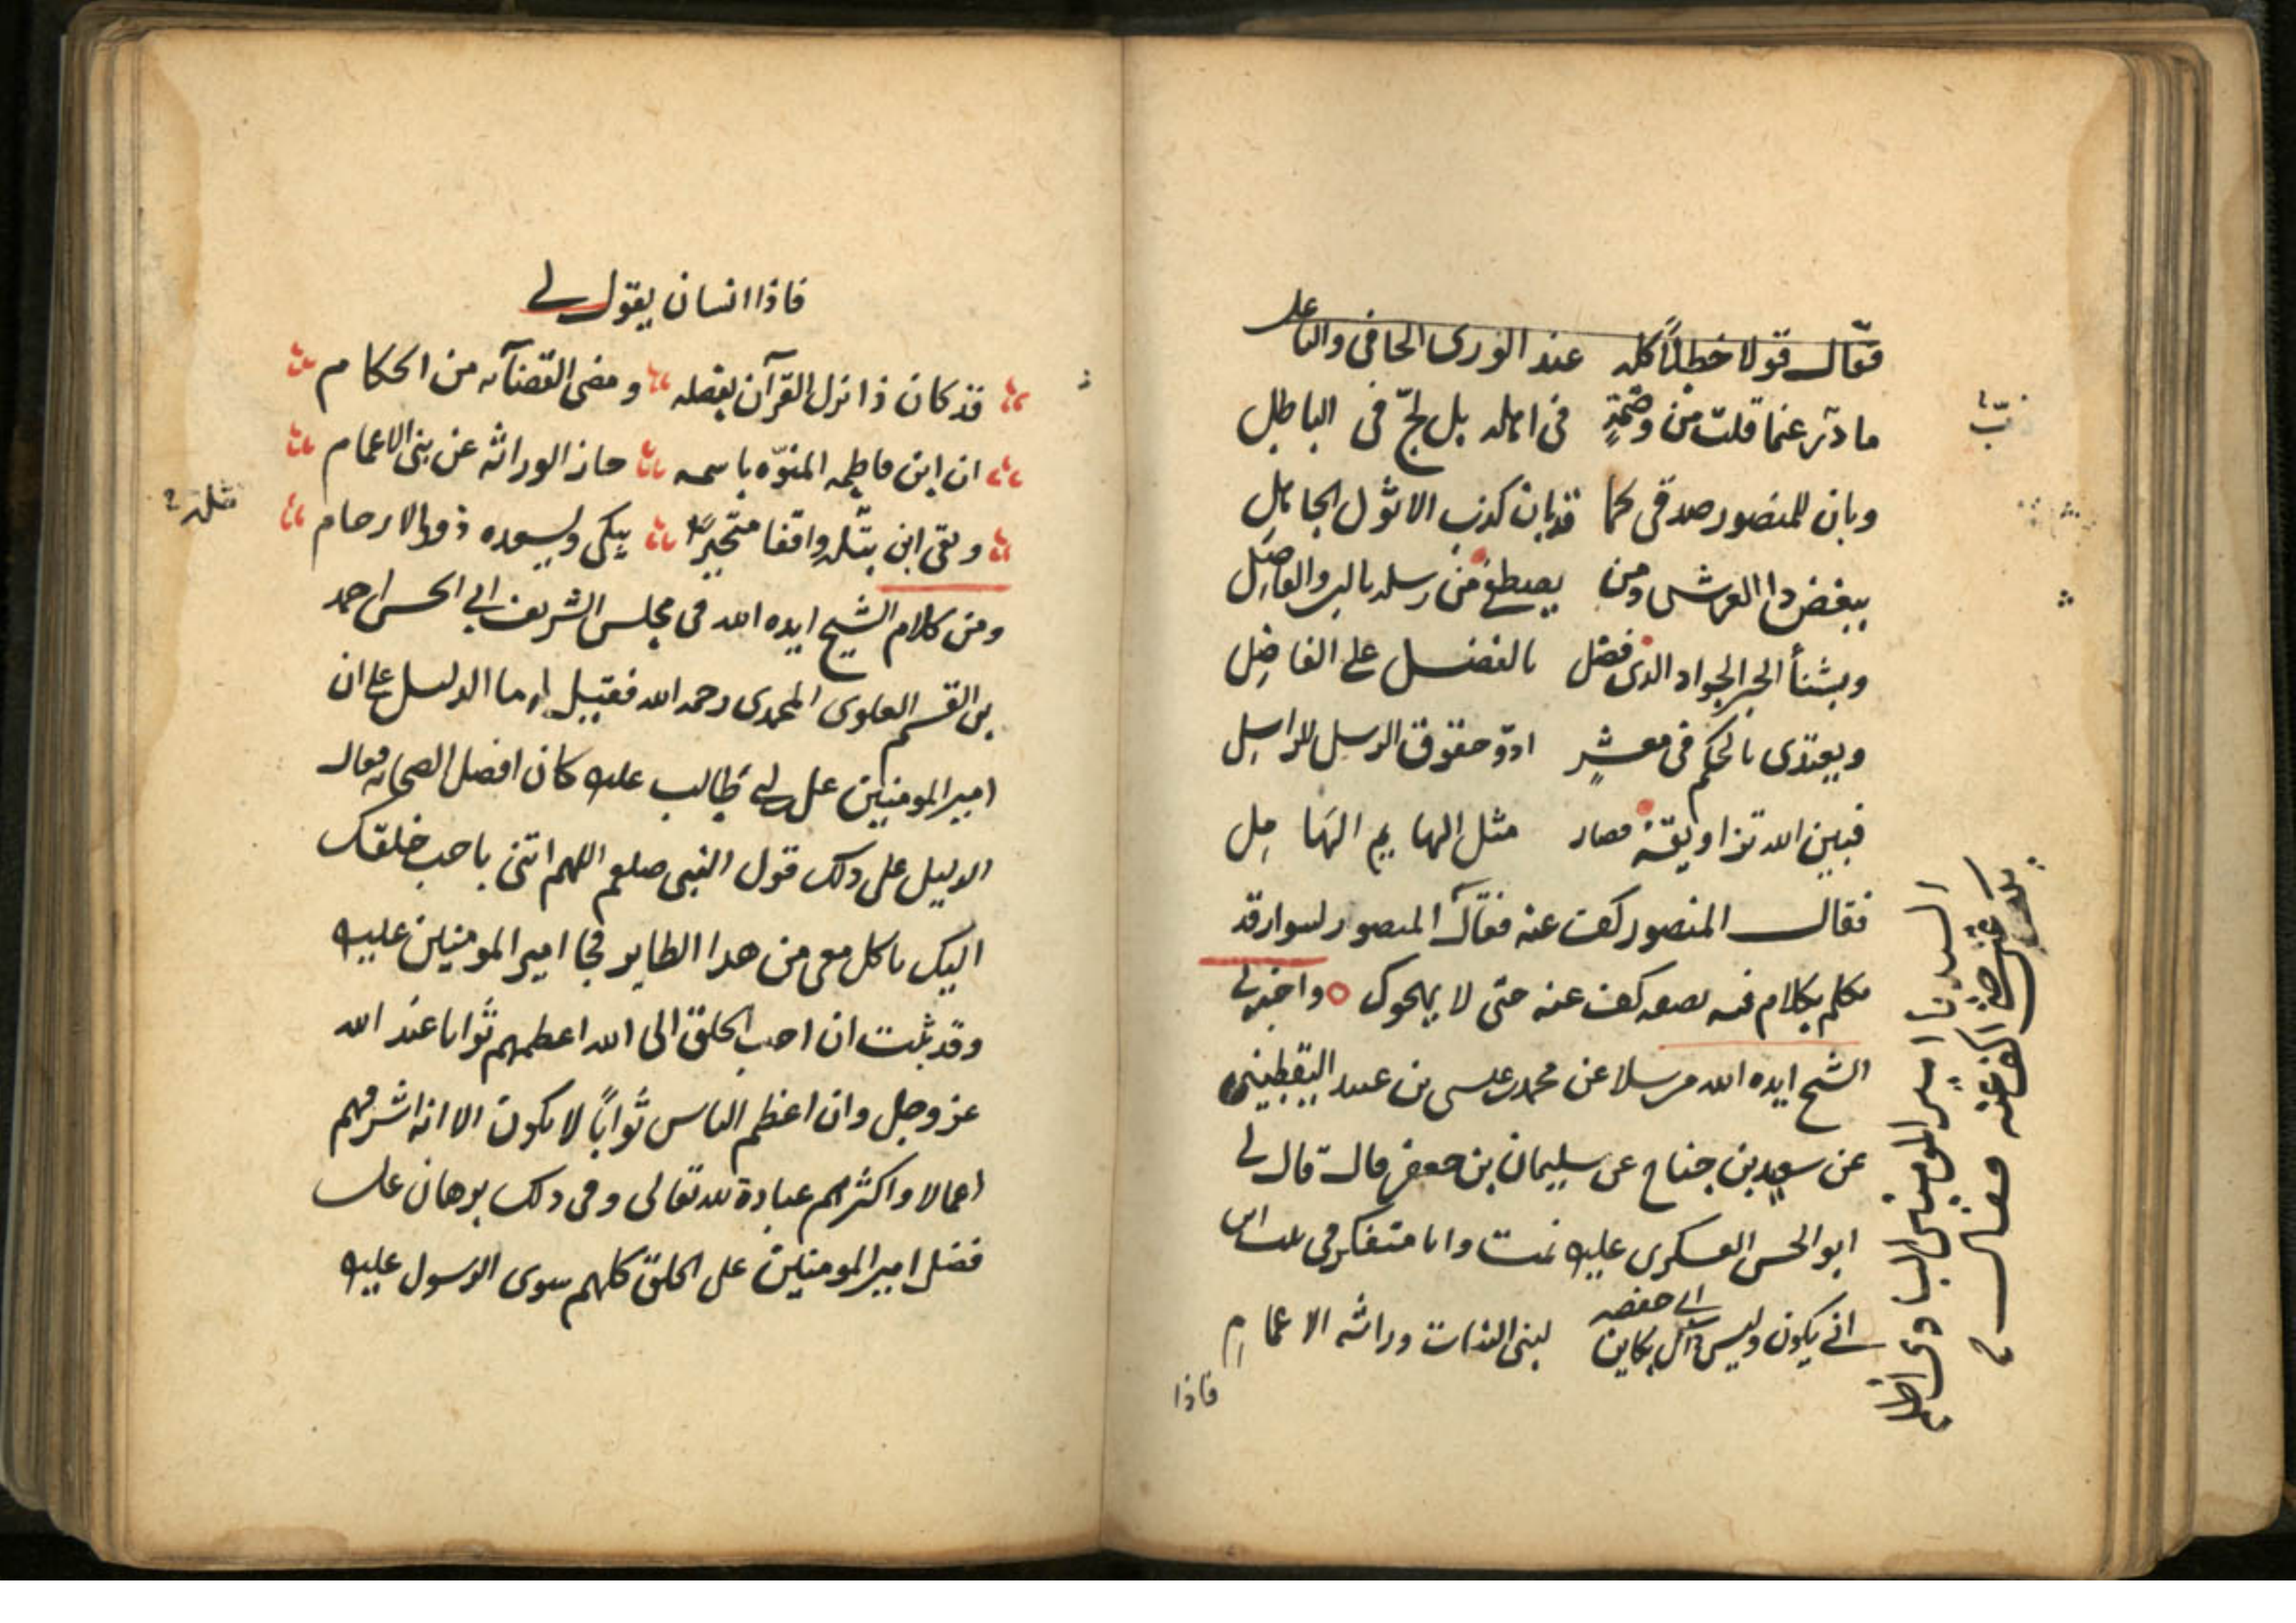 فقال قولا خطلاً كله عند الورى الحافي والناعل
ما دبّر عنما قلت من وصمةٍ في اهله بل لجّ في الباطل
وبان للمنصور صدقي كما قد بان كذب الانوك الجاهل
يبغض ذا العرش ومن يصطفى من رسله بالبر والفاصل
ويشنأ الحبر الجواد الذى فضل بالفضل على الفاضل
ويعتدى بالحكم في معشرٍ ادوّ حقوق الرسل للراسل
فبين الله تزاويقه فصار مثل الهايم الهامل
فقال المنصور كف عنه فقال المنصور لسوار قد
تكلم بكلام فيه نصفه كف عنه حتى لا يهجوك واخبرني
الشيخ ايده الله مرسلا عن محمد بن عيسى بن عبيد اليقطيني
عن سعيد بن جناح عن سليمان بن جعفر قال قال لي
ابو الحسن العسكرى عليه نمت وانا متفكر في بيت ابن
ابي حفصه
انى يكون وليس ذاك بكاين لبني البنات وراثه الاعمام
فاذا
فقال السيد يا امير المومنين البادى اظلم
فاذا انسان يقول لي
قد كان ذا نزل القرآن بفضله ومضى القضآء به من الحكام
ان ابن فاطمه المنوّه باسمه حاز الوراثه عن بنى الاعمام
وبقى ابن نثله واقفا متحيرًا يبكى ويسعده ذووا الارحام
نثله
ومن كلام الشيخ ايده الله في مجلس الشريف ابي الحسن احمد
بن القسم العلوى المحمدى رحمه الله فقيل له ما الدليل على ان
امير المومنين على بن ابي طالب عليه كان افضل الصحابه فقال
الدليل على ذلك قول النبى صلعم اللهم ائتنى باحب خلقك
اليك ياكل معى من هذا الطاير فجا امير المومنين عليه
وقد ثبت ان احب الخلق الى الله اعظمهم ثوابا عند الله
عز وجل وان اعظم الناس ثواباً لا يكون الا انه اشرفهم
اعمالا واكثرهم عبادة لله تعالى وفي ذلك برهان على
فضل امير المومنين على الخلق كلهم سوى الرسول عليه